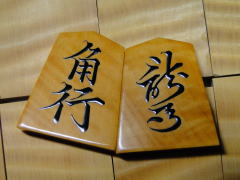 角行
龍馬